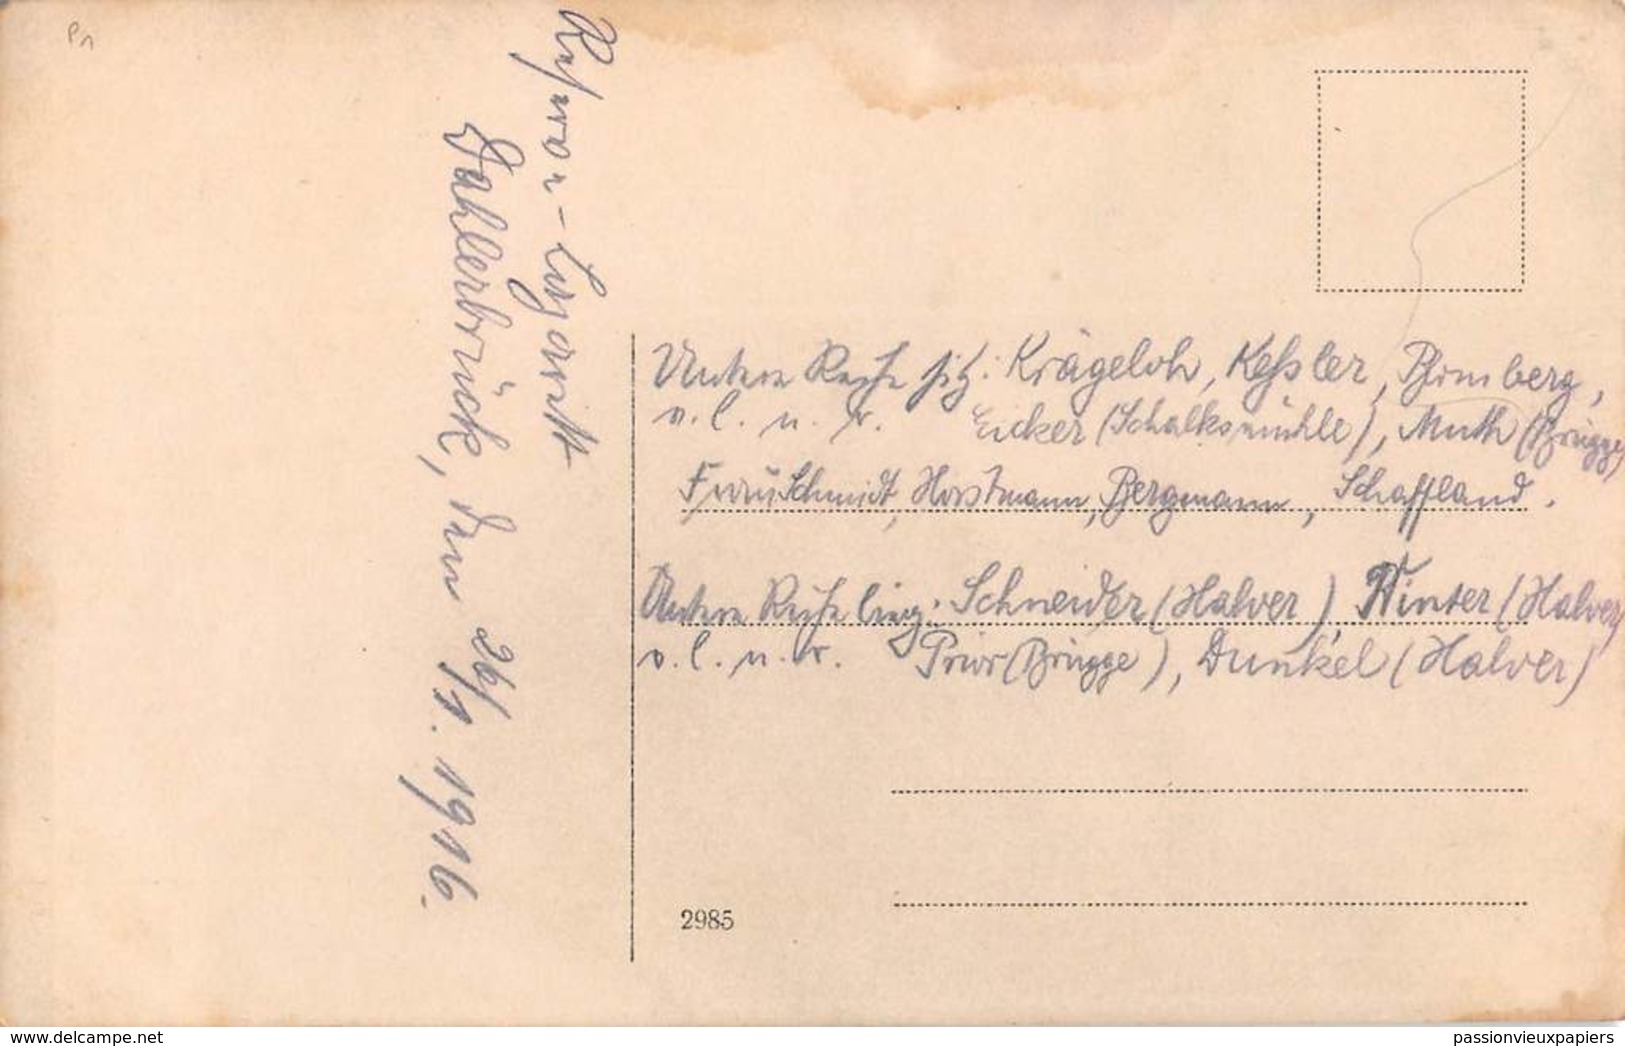 P1
Reserve-Lazarett
Dahlerbrück, den 26/1. 1916.
Untere Reihe sitz: Krägeloh, Keßler, Blomberg,
v. l. n. r. Eicker (Schalksmühle), Muth (Brügge)
Frau Schmidt, Horstmann, Bergmann, Schaffland.
Untere Reihe lieg: Schneider (Halver) Winter (Halver)
v. l. n. r. Prior (Brügge), Dunkel (Halver)
2985
delcampe.net
passionvieuxpapiers